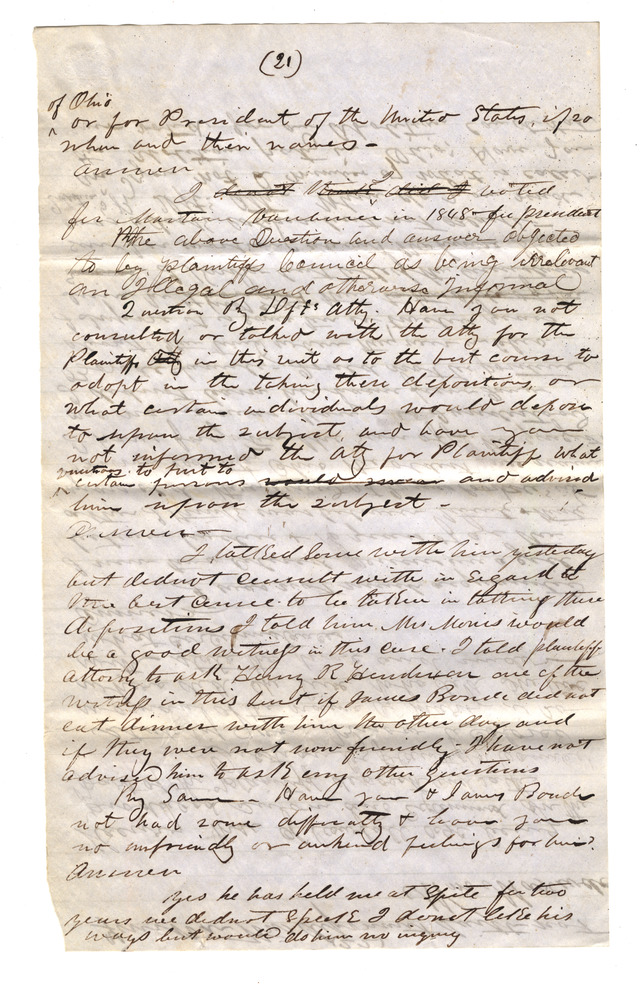 (21)
of Ohio
or for President of the United States, if so
whom and their names -
Answer
I do not Bank did I voted
for Martain Vanburin in 1848 for president
The above Question and answer objected
to by plaintiffs Council as being irrelevant
an Illegal and otherwise Informal
Question By Dfts atty. Have you not
consulted or talked with the atty for the
Plaintiff Atty in this suit as to the best course to
adopt in the taking these depositions, or
what certain individuals would depose
to upon the subject, and have you
not informed the Atty for Plaintiff what
questions to put to
certain persons would swear and advised
him upon the subject -
Answer
I talked some with him yesterday
but didnot consult with in regard to
the best course to be taken in tatting these
depositions I told him Mrs Morris would
be a good witness in this case. I told plaintiff
attorny to ask Henry R Henderson one of the
witness in this suit if James Bonde did not
eat dinner with him the other day and
if they were not now friendly. I have not
advised him to ask eny other questions
By Same Have you & James Bonde
not had some difficulty & have you
no unfriendly or unkind feelings for him?
Answer
Yes he has held me at Spite for two
years we didnot Speek I donot like his
ways but would do him no ingury